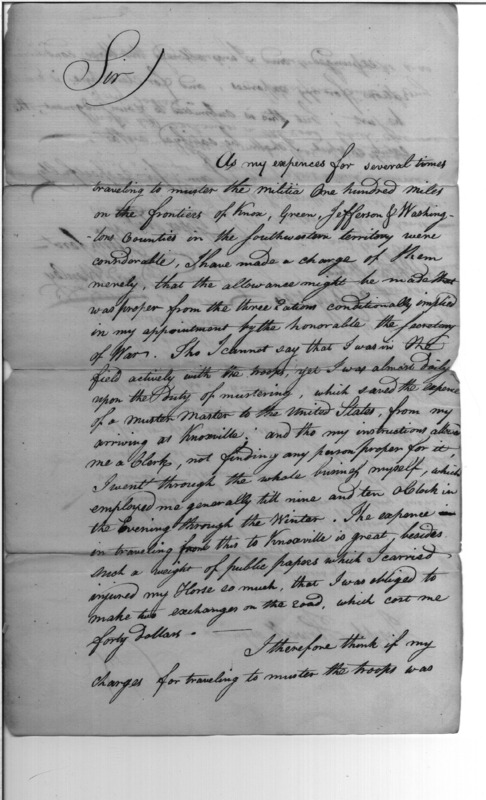 Sir,
As my expences for several times
traveling to muster the militia One hundred miles
on the frontiers of Knox, Green, Jefferson & Washing-
-tons Counties in the Southwestern territory were
considerable, I have made a charge of them
merely, that the allowance might be made that
was proper from the three Rations conditionally implied
in my appointment by the honorable the Secretary
of War. Tho I cannot say that I was in the
field actively with the troops, yet I was almost daily
upon the Duty of mustering, which saved the expence
of a muster Master to the United States, from my
arriving at Knoxville; and tho my instructions
me a Clerk, not finding any person proper for it,
I went through the whole business myself, which
employed me generally till nine and ten oClock in
the Evening through the Winter. The expence
in traveling from this to Knoxville is great, besides
such a weight of public papers which I carried
injured my Horse so much, that I was obliged to
make two exchanges on the road, which cost me
forty dollars.
I therefore think if my
charges for traveling to muster the troops was